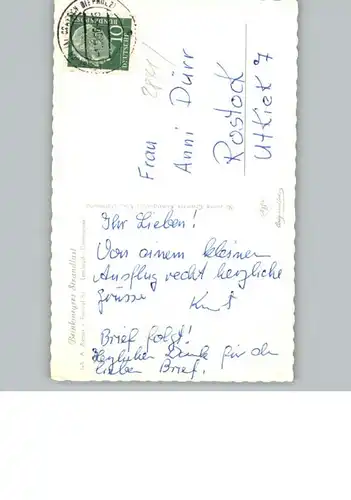 Ihr Lieben!
Von einem kleinen
Ausflug recht herzliche
Grüsse Kurt
Brief folgt!
Herzlichen Dank für den
lieben Brief.
Frau
Anni Dürr
Rostock
Utkiek 7
10
DEUTSCHE
BUNDESPOST
Brinkmeyers Strandlust